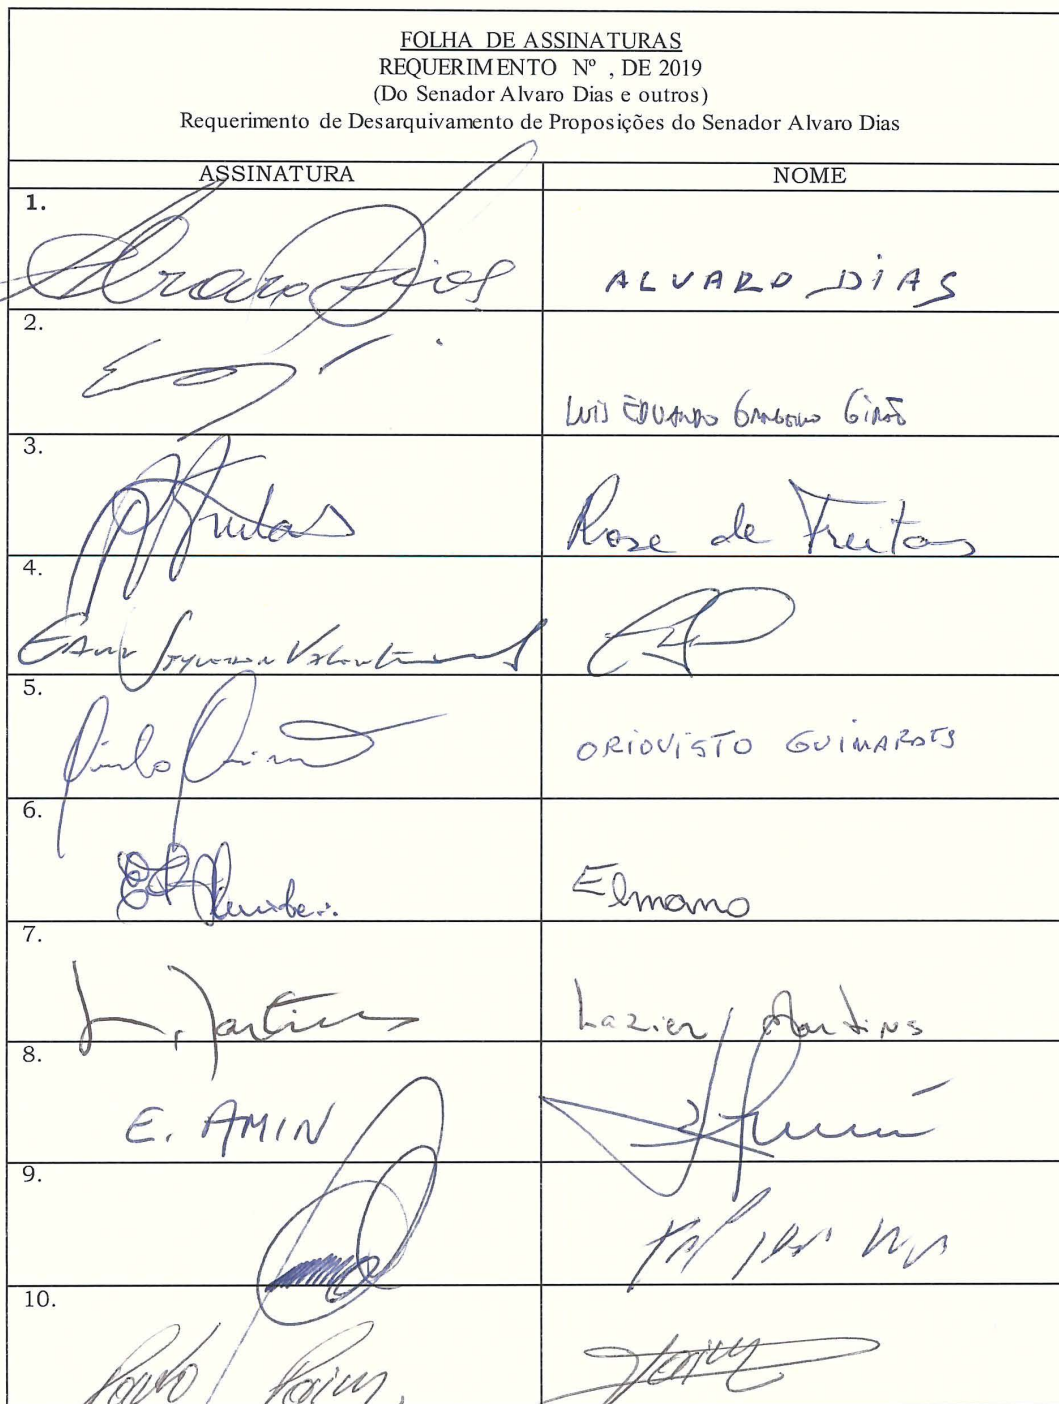 FOLHA DE ASSINATURAS
REQUERIMENTO Nº , DE 2019
(Do Senador Alvaro Dias e outros)
Requerimento de Desarquivamento de Proposições do Senador Alvaro Dias
ASSINATURA NOME
1.
Alvaro Dias ALVARO DIAS
2.
LUIS EDUARDO GRANGEIRO GIRÃO
3.
Freitas Rose de Freitas
4.
Valentim
5.
ORIOVISTO GUIMARÃES
6.
Elmano
7.
L. Martins Lasier Martins
8.
E. AMIN
9.
10.
Paulo Paim